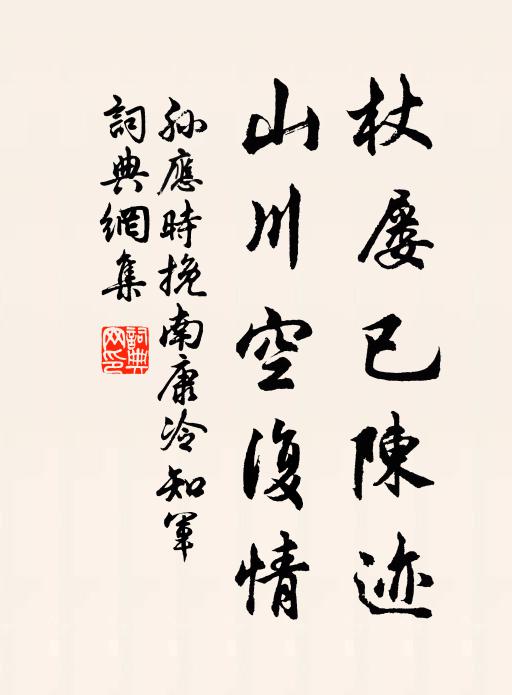 杖屨已陳迹
山川空復情
孫應時挽南康冷知軍
詞典網集
詞典網印